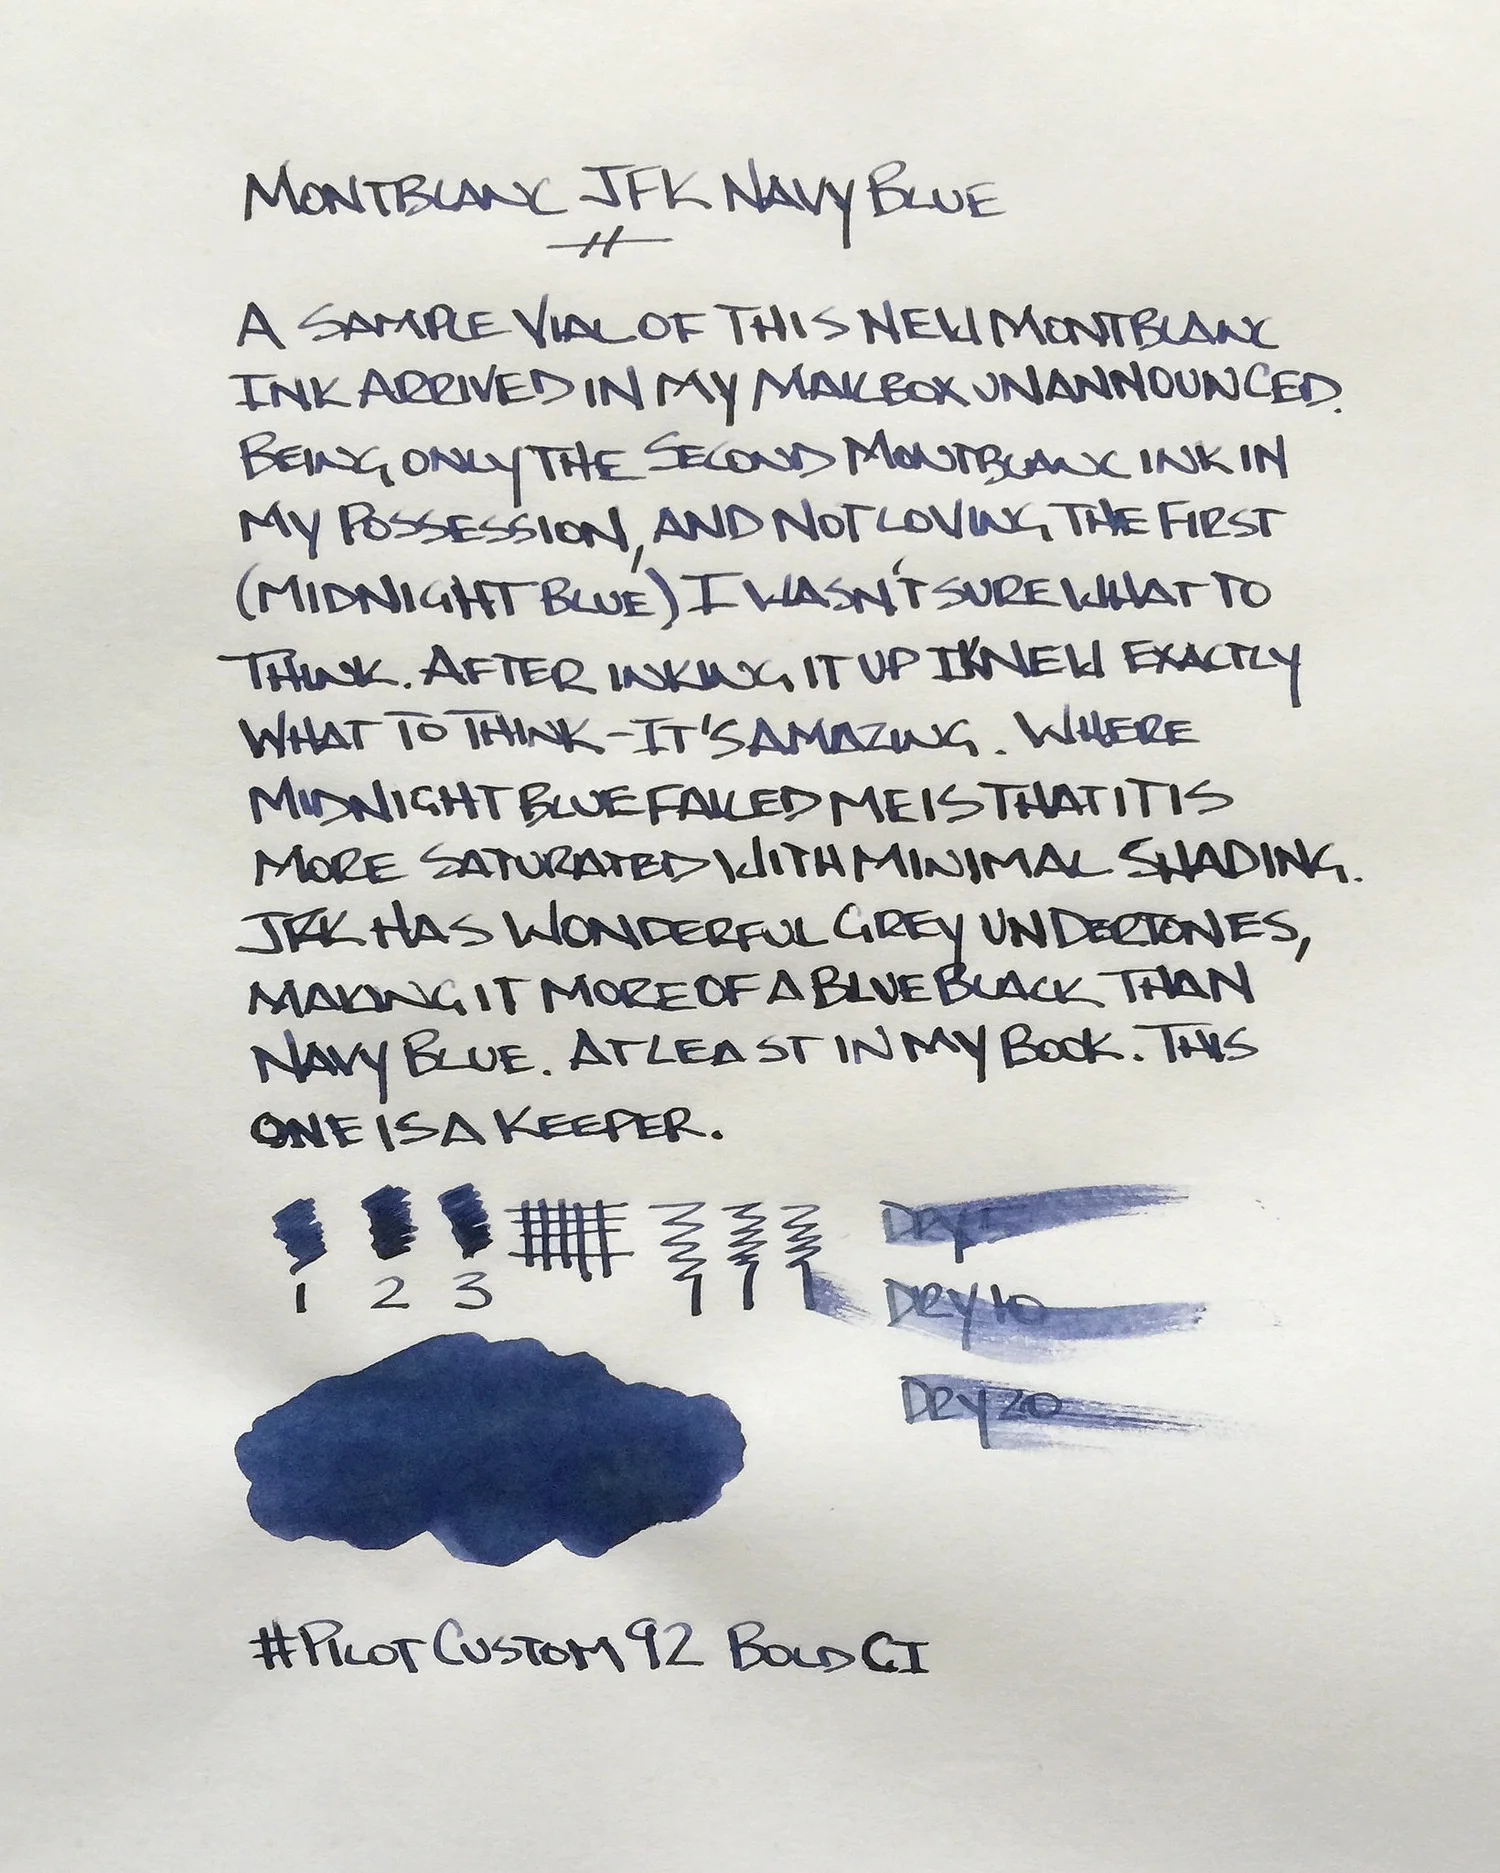 MONTBLANC JFK NAVY BLUE
A SAMPLE VIAL OF THIS NEW MONTBLANC
INK ARRIVED IN MY MAILBOX UNANNOUNCED.
BEING ONLY THE SECOND MONTBLANC INK IN
MY POSSESSION, AND NOT LOVING THE FIRST
(MIDNIGHT BLUE) I WASN'T SURE WHAT TO
THINK. AFTER INKING IT UP I KNEW EXACTLY
WHAT TO THINK - IT'S AMAZING. WHERE
MIDNIGHT BLUE FAILED ME IS THAT IT IS
MORE SATURATED WITH MINIMAL SHADING.
JFK HAS WONDERFUL GREY UNDERTONES,
MAKING IT MORE OF A BLUE BLACK THAN
NAVY BLUE. AT LEAST IN MY BOOK. THIS
ONE IS A KEEPER.
1 2 3
DRY
DRY 10
DRY 20
#PILOT CUSTOM 92 BOLD CI